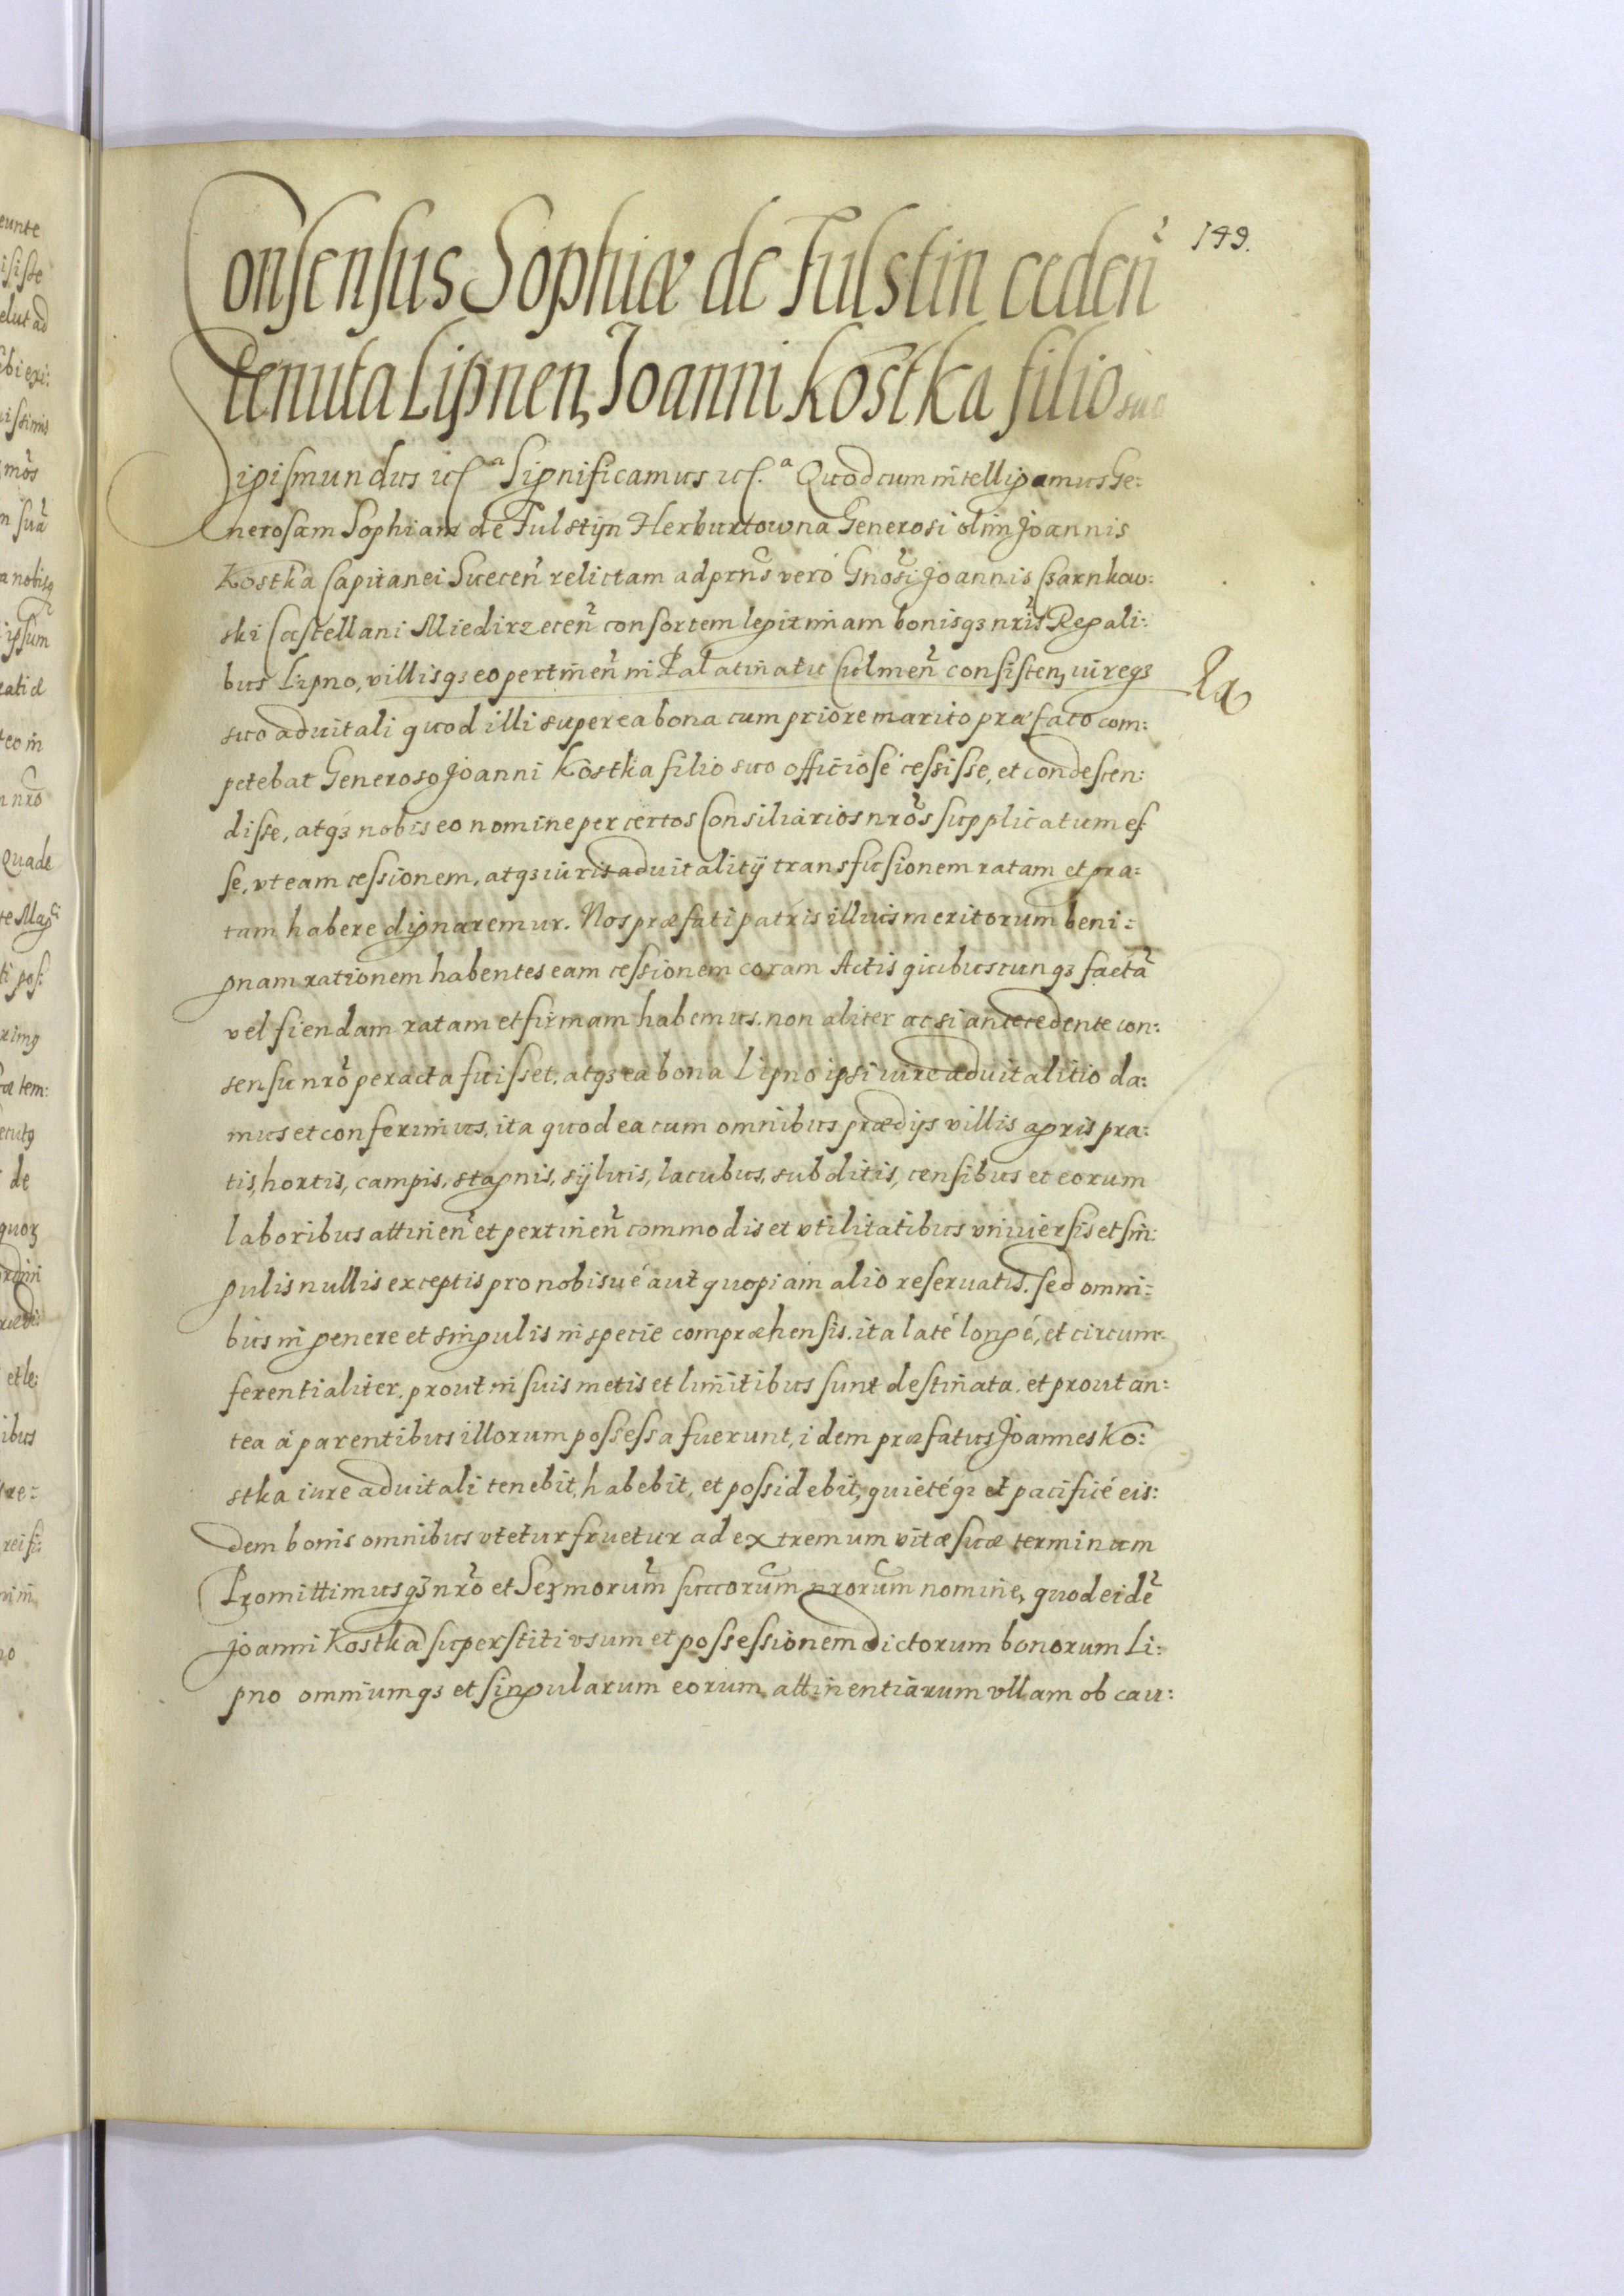 149.
Consensus Sophiæ de Fulstin ceden̄
tenuta Lipnen, Joanni Kostka filio suo
Sigismundus etc.ᵃ Significamus etc.ᵃ Quod cum intelligamus Ge:
nerosam Sophiam de Fulstijn Herburtowna Generosi olim Joannis
Kostka Capitanei Suecen̄ relictam ad prn̄s verò Gnōsi Joannis Czarnkow:
ski Castellani Miedirzecen̄ consortem legitimam bonisqȝ nrīs Regali:
bus Lipno, villisqȝ eo pertinen̄ in Palatinatu Culmen̄ consisten, iureqȝ
suo aduitali quod illi super ea bona cum priore marito præfato com:
petebat Generoso Joanni Kostka filio suo officiosè cessisse, et condescen:
disse, atqȝ nobis eo nomine per certos Consiliarios nrōs supplicatum es
se, vt eam cessionem, atqȝ iuris aduitalitij transfusionem ratam et gra:
tam habere dignaremur. Nos præfati patris illius meritorum beni:
gnam rationem habentes eam cessionem coram Actis quibuscunqȝ factā
vel fiendam ratam et firmam habemus. non aliter ac si antecedente con:
sensu nrō peracta fuisset. atqȝ ea bona Lipno ipsi iure aduitalitio da:
mus et conferimus, ita quod ea cum omnibus prædijs villis agris pra:
tis, hortis, campis, stagnis, syluis, lacubus, subditis, censibus et eorum
laboribus attinen̄ et pertinen̄ commodis et vtilitatibus vniuersis et sin:
gulis nullis exceptis pro nobisuè aut quopiam alio reseruatis. sed omni:
bus in genere et singulis in specie compræhensis. ita latè longè, et circum:
ferentialiter. prout in suis metis et limitibus sunt destinata. et prout an:
tea à parentibus illorum possessa fuerunt, idem præfatus Joannes Ko:
stka iure aduitali tenebit, habebit, et possidebit, quietèqȝ et pacificè eis:
dem bonis omnibus vtetur fruetur ad extremum vitæ suæ terminum
Promittimusqȝ nrō et Sermorum̄ succorum̄ nrorum̄ nomine, quod eidē
Joanni Kostka superstiti vsum et possessionem dictorum bonorum Li:
pno omniumqȝ et singularum eorum attinentiarum vllam ob cau: